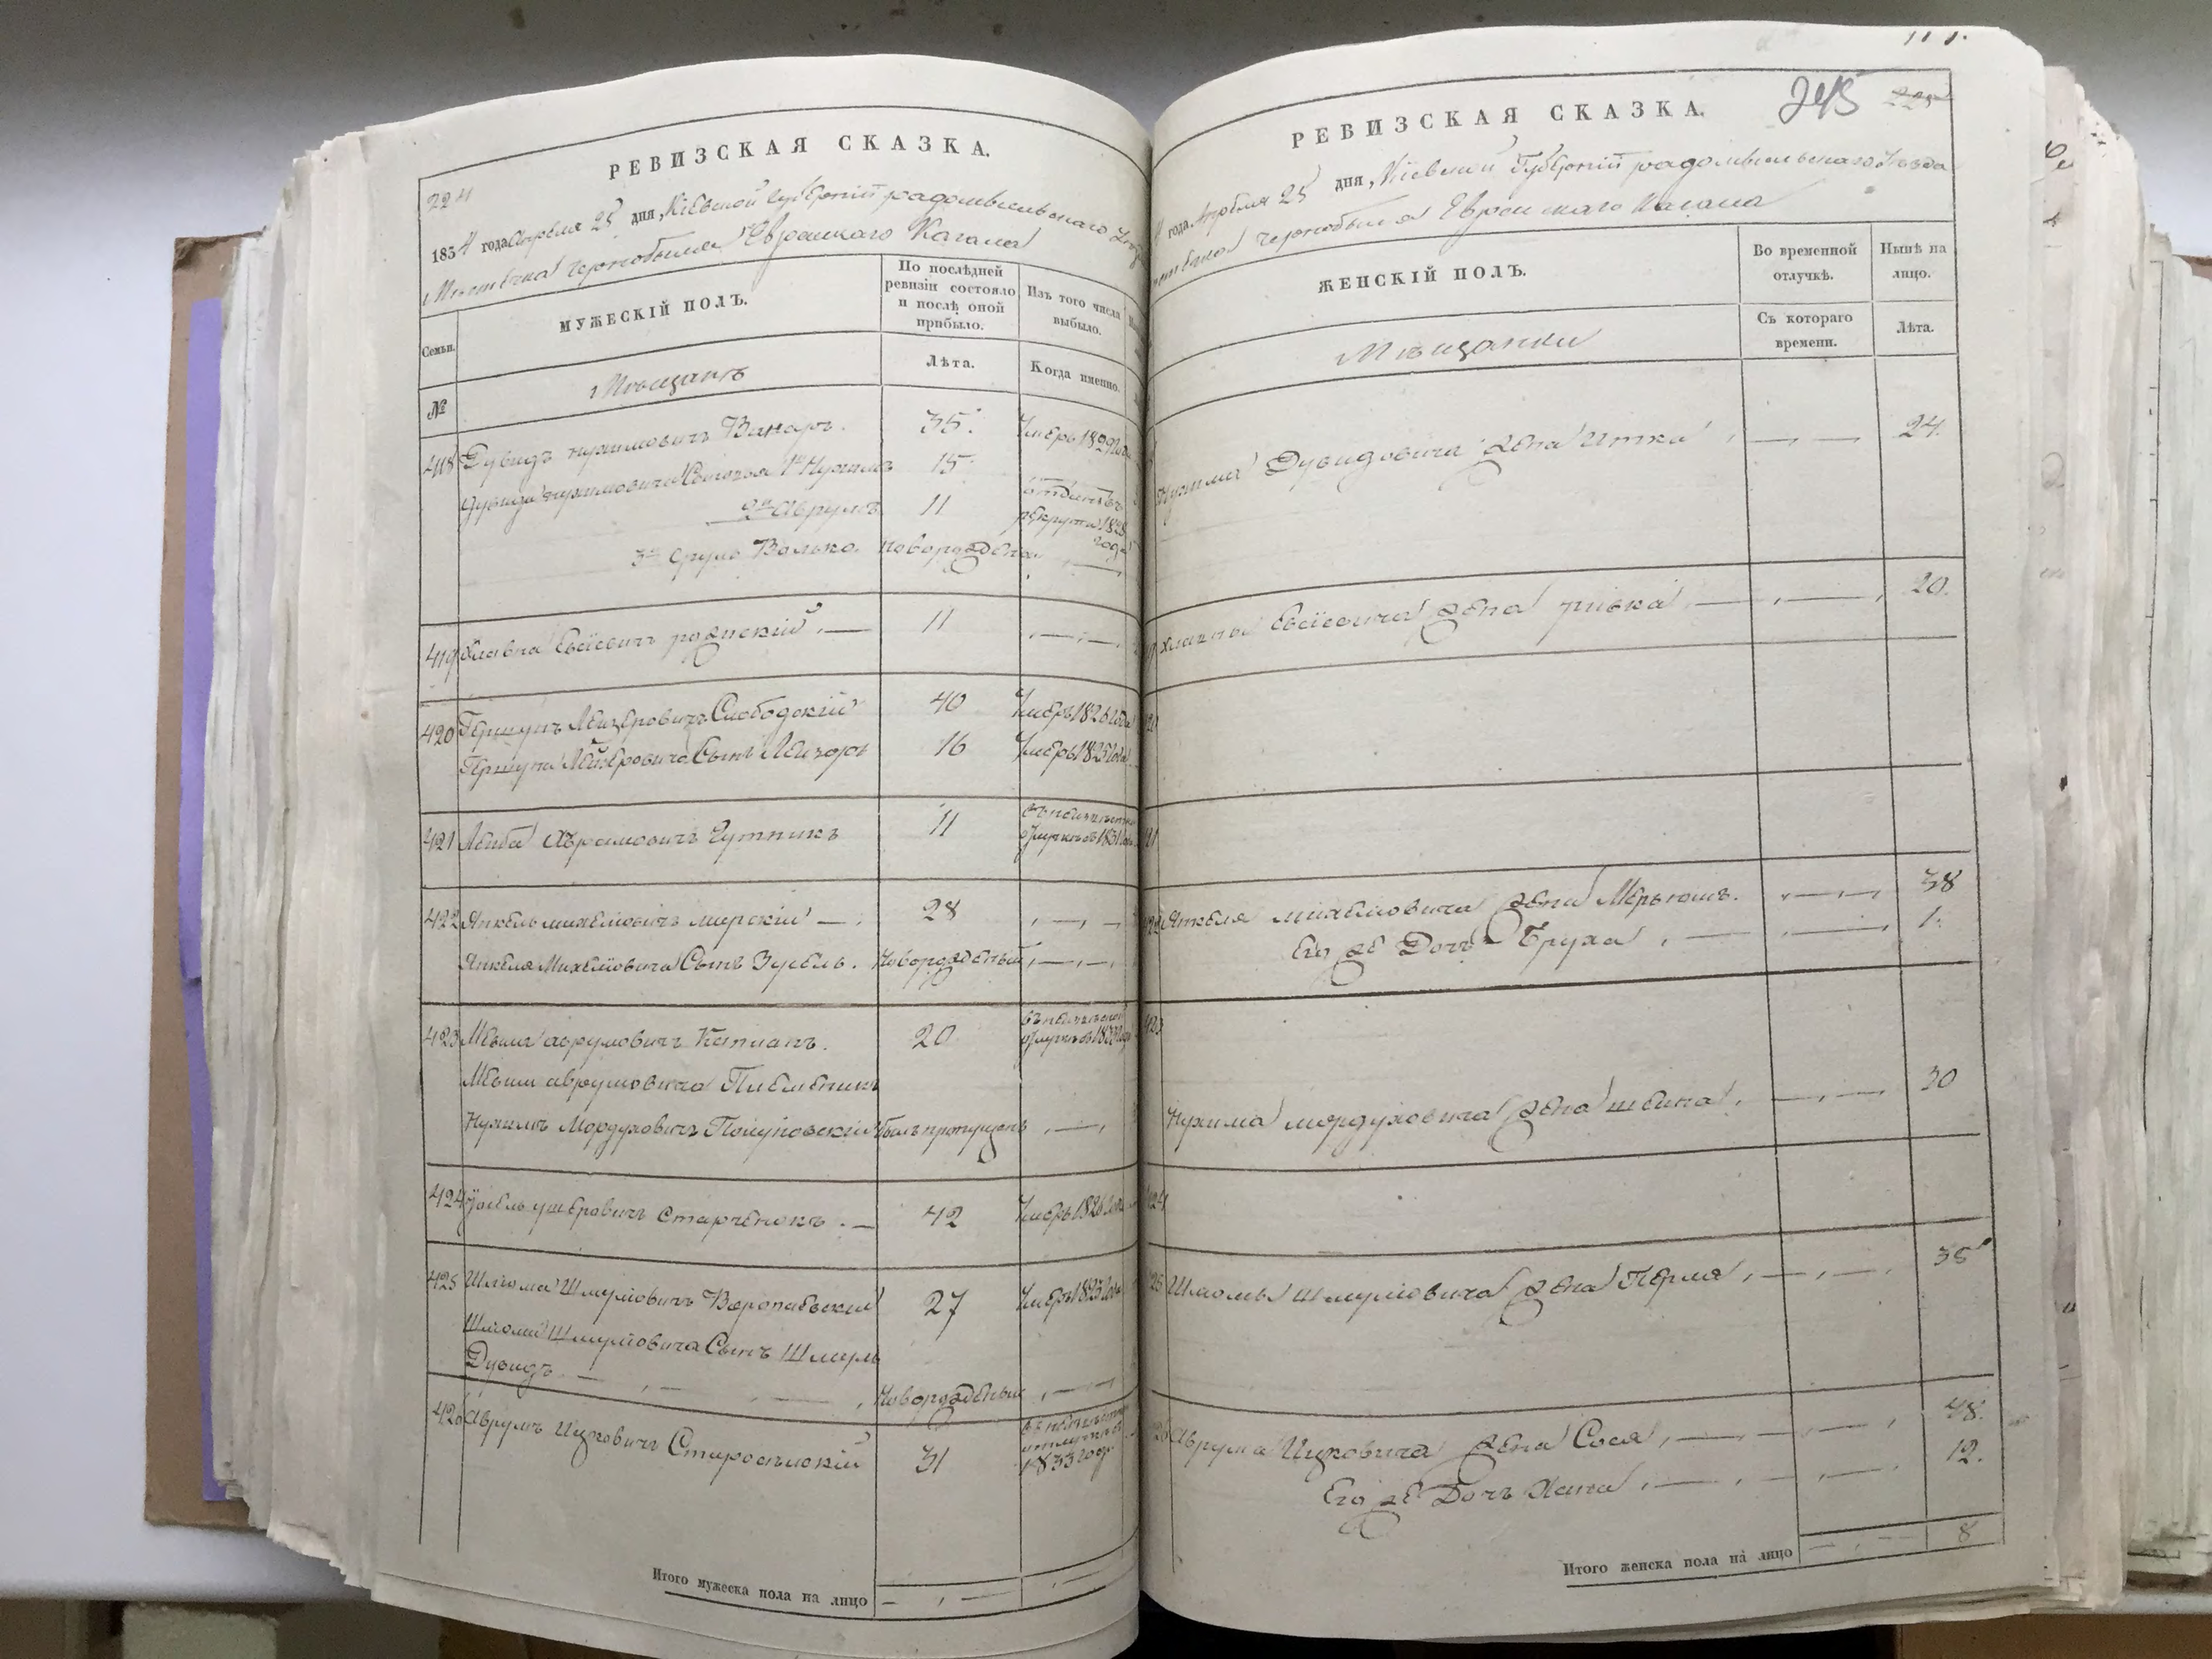 РЕВИЗСКАЯ СКАЗКА.
224
1834 года Апреля 25 дня, Кіевской Губерніи радомысльскаго
Мѣстечка Чернобыля Еврейскаго Кагала
Семьи.
МУЖЕСКІЙ ПОЛЪ.
По послѣдней ревизіи состояло и послѣ оной прибыло.
Изъ того числа выбыло.
№
Мѣщанъ
Лѣта.
Когда именно.
418 Дувидъ Нухимовичъ 35. Умеръ 1829
Дувида Нухимовича Сыновья 1й Нухимъ 15.
2й Аврумъ 11 отданъ въ рекруты 1828 года
3й Сруль Волько. новорожденъ
419 Хлавна Евсіевичъ 11
420 Гершунъ Лейзеровичъ Слободскій 40 Умеръ 1826 года
Гершуна Лейзеровича Сынъ Лейзоръ 16 Умеръ 1825 года
421 Лейба Абрамовичъ Гутникъ 11 1831
422 Янкель Михелювичъ мирскій 28
Янкеля Михелювича Сынъ Зусель. Новорожденый
423 Мевша аврумовичъ Капланъ. 20
Мевши аврумовича Племеникъ
Нухимъ Мордуховичъ былъ пропущенъ
424 ушеровичъ Старченокъ. 42 Умеръ 1826 года
425 Шлома Шмулювичъ 27 Умеръ 1825 года
Шломы Шмулювича Сынъ Шмуль
Дувидъ Новорожденый
426 Аврумъ Ицковичъ Старосельскій 31 1833 года
Итого мужеска пола на лицо
РЕВИЗСКАЯ СКАЗКА.
243 225
года Апреля 25 дня, Кіевской Губерніи радомысльскаго Уѣзда
Чернобыля Еврейскаго Кагала
ЖЕНСКІЙ ПОЛЪ.
Во временной отлучкѣ.
Нынѣ на лицо.
Мѣщанки
Съ котораго времени.
Лѣта.
Нухима Дувидовича жена Итка 24.
Хлавны Евсіевича жена ривка 20.
422 Янкеля михелювича жена Меръюмъ. 38
Его же Дочь Бруха 1.
423
Нухима мордуховича жена шейна 30
424
Шломы Шмулювича жена Перля 35
Аврума Ицковича жена Сося 48.
Его же Дочь Хана 12.
Итого женска пола на лицо 8